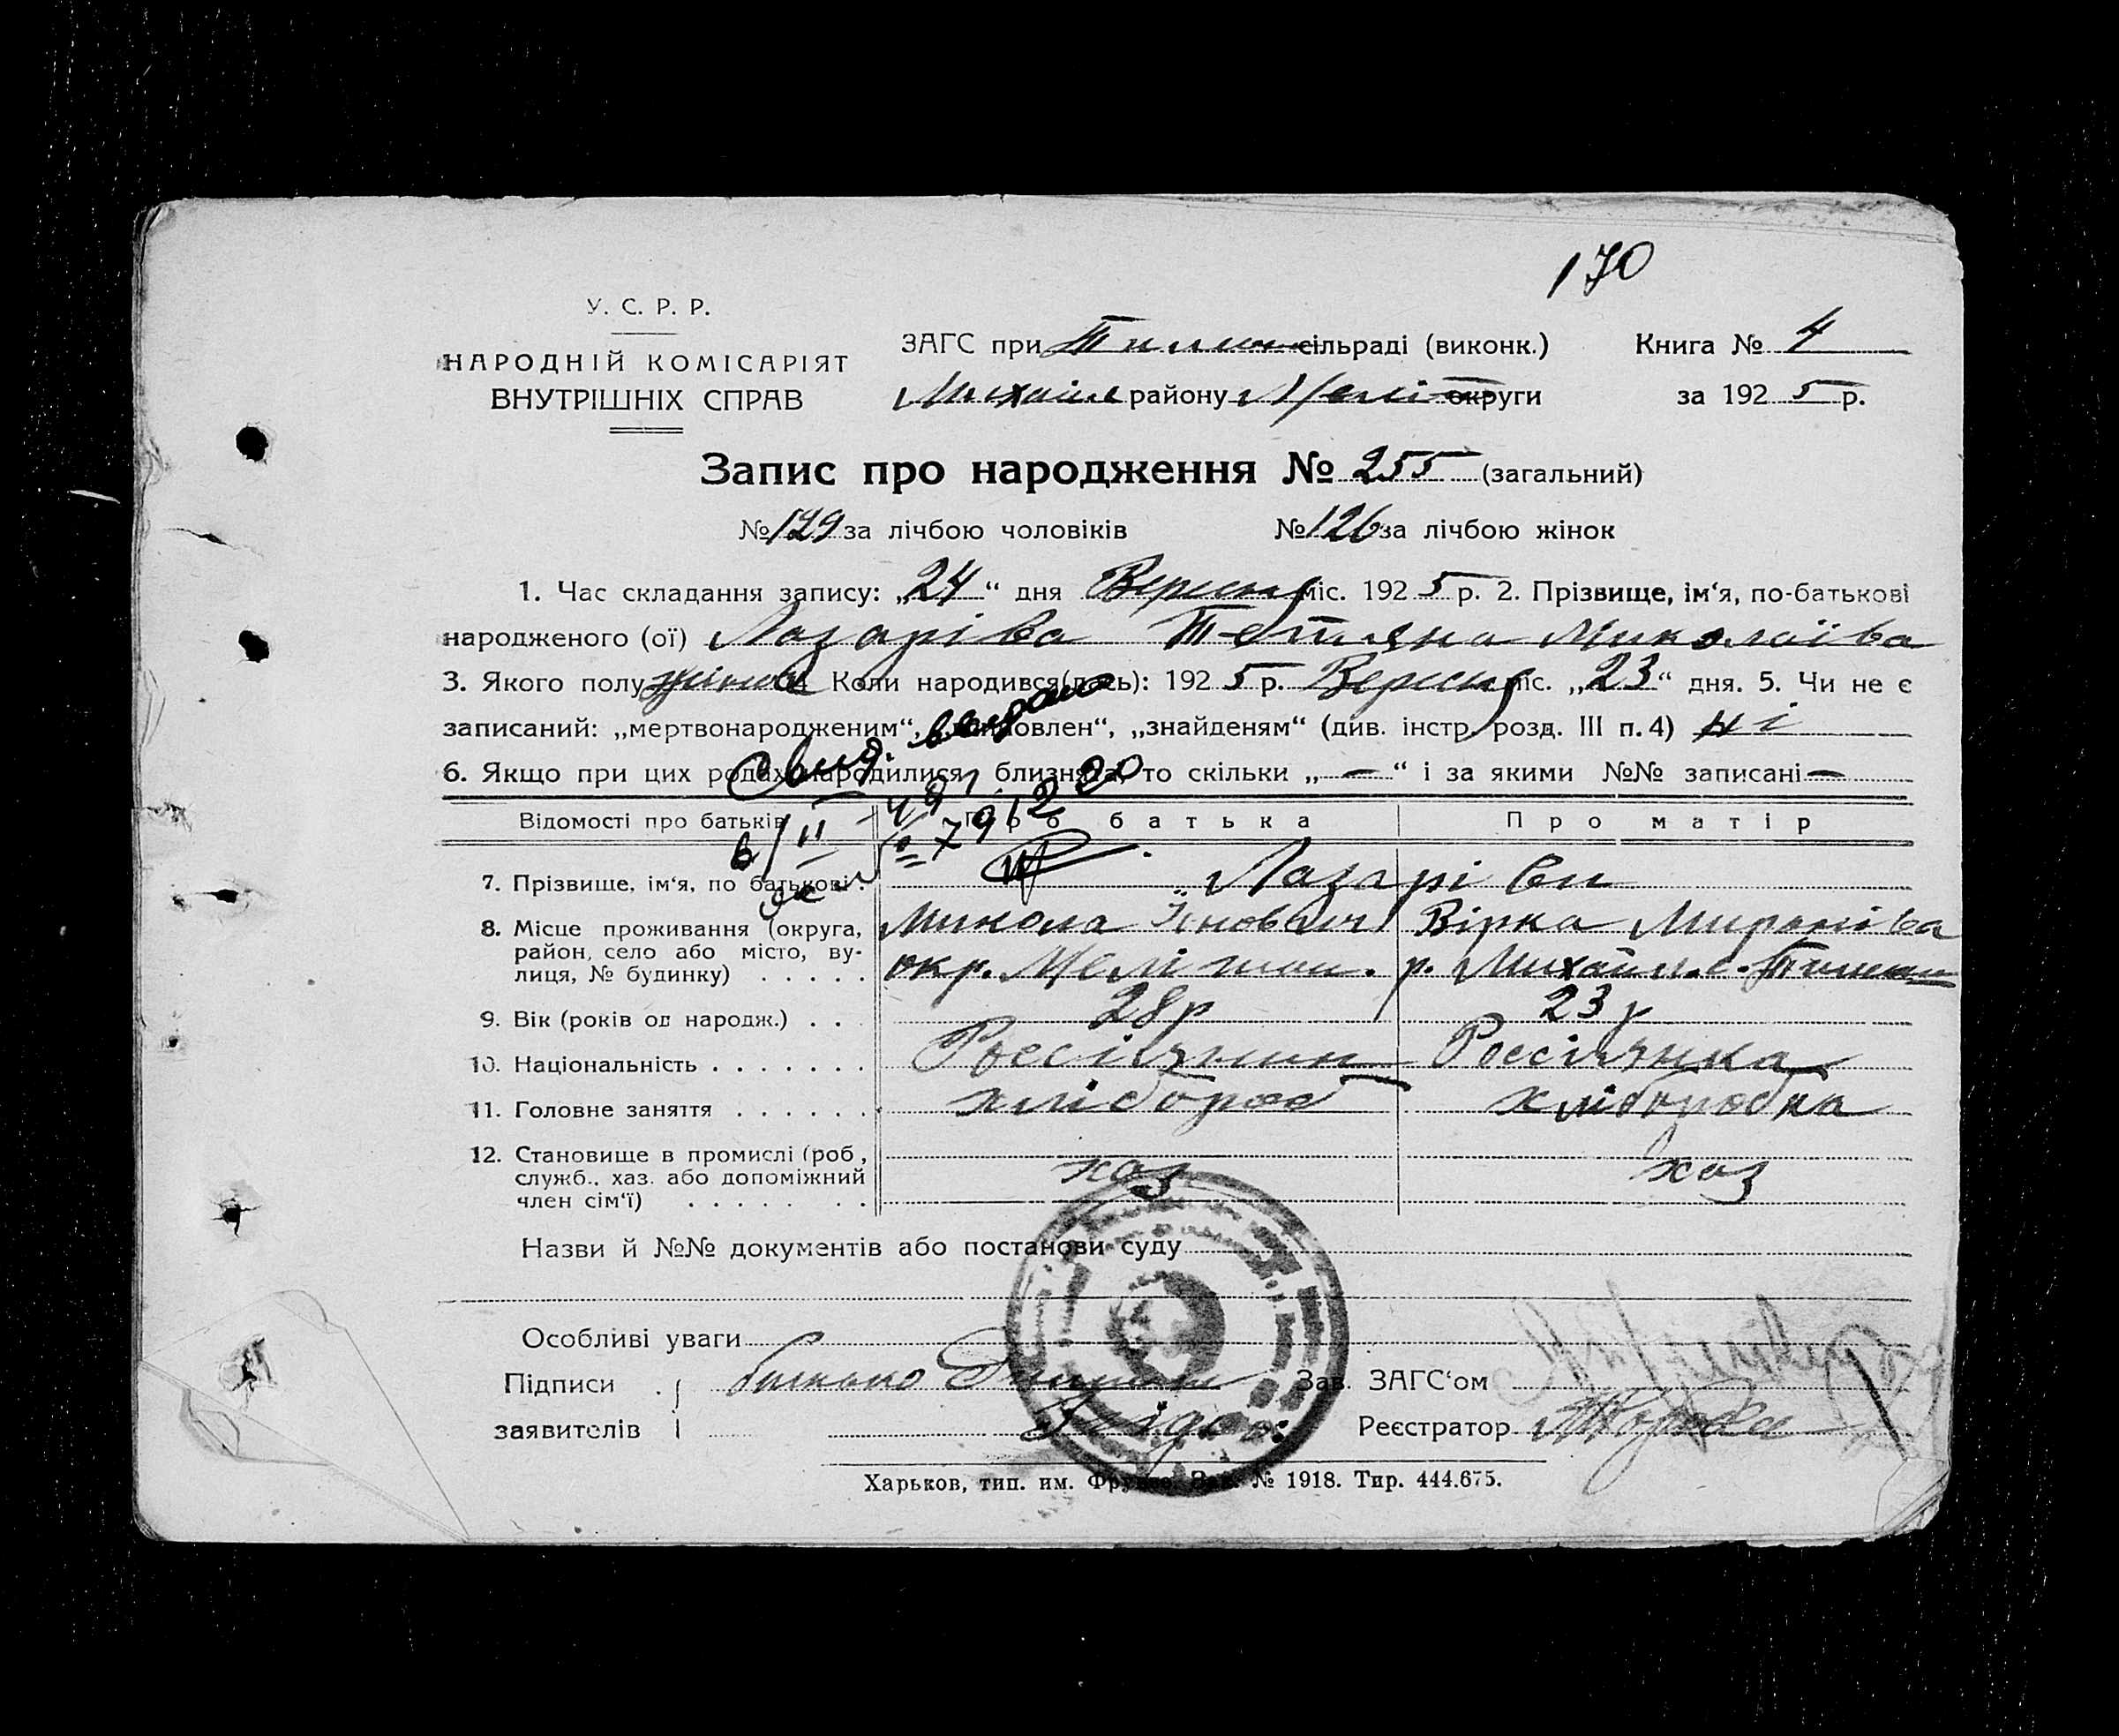 170
У. С. Р. Р.
НАРОДНІЙ КОМІСАРІЯТ
ВНУТРІШНІХ СПРАВ
ЗАГС при сільраді (виконк.)
Книга № 4
Михайл району Меліт округи
за 1925 р.
Запис про народження № 255 (загальний)
№ 129 за лічбою чоловіків № 126 за лічбою жінок
1. Час складання запису: „24“ дня Вересня міс. 1925 р. 2. Прізвище, ім‘я, по-батькові
народженого (ої) Лазарiва Тетяна Миколаївa
3. Якого полу жіноч 4. Коли народився(лась): 1925 р. Вересня міс. „23“ дня. 5. Чи не є
записаний: „мертвонародженим“, „ „знайденям“ (див. інстр. розд. III п. 4) ні
6. Якщо при цих родах народилися близнята, то скільки „—“ і за якими №№ записані —
Свид. выдано
6/II - 49 г.
Відомості про батьків Про батька Про матір
7. Прізвище, ім‘я, по батькові . Лазаріви
8. Місце проживання (округа, Микола Вірка Миронівa
район, село або місто, ву-
лиця, № будинку) . . . . . окр. Меліто п. р. Михайл. с.
9. Вік (років од народж.) . . . 28 р 23 р
10. Національність . . . . . . . Россіянин Россіянка
11. Головне заняття . . . . . . хлібороб хліборобка
12. Становище в промислі (роб.,
служб., хаз. або допоміжний хаз хаз
член сім‘ї) . . . . . . .
Назви й №№ документів або постанови суду
Особливі уваги
Підписи батько Зав. ЗАГС‘ом
заявителів Реєстратор
Харьков, тип. им. Фрунзе. Зак. № 1918. Тир. 444.675.